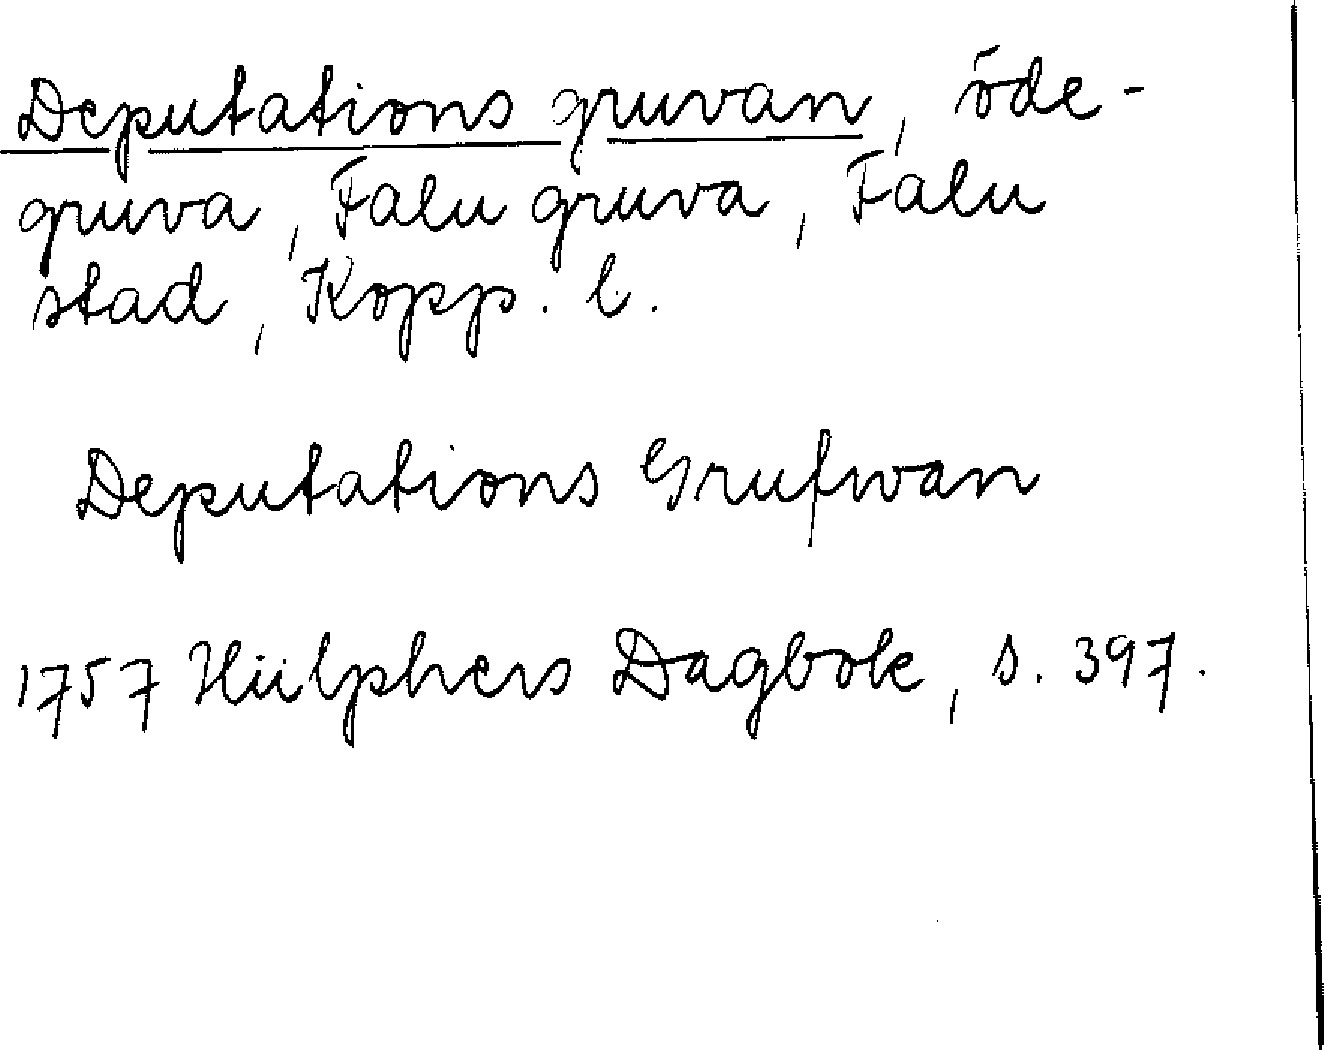 Deputations gruvan, öde-
gruva, Falu gruva, Falu
stad, Kopp. l.
Deputations Grufwan
1757 Hülphers Dagbok, s. 397.